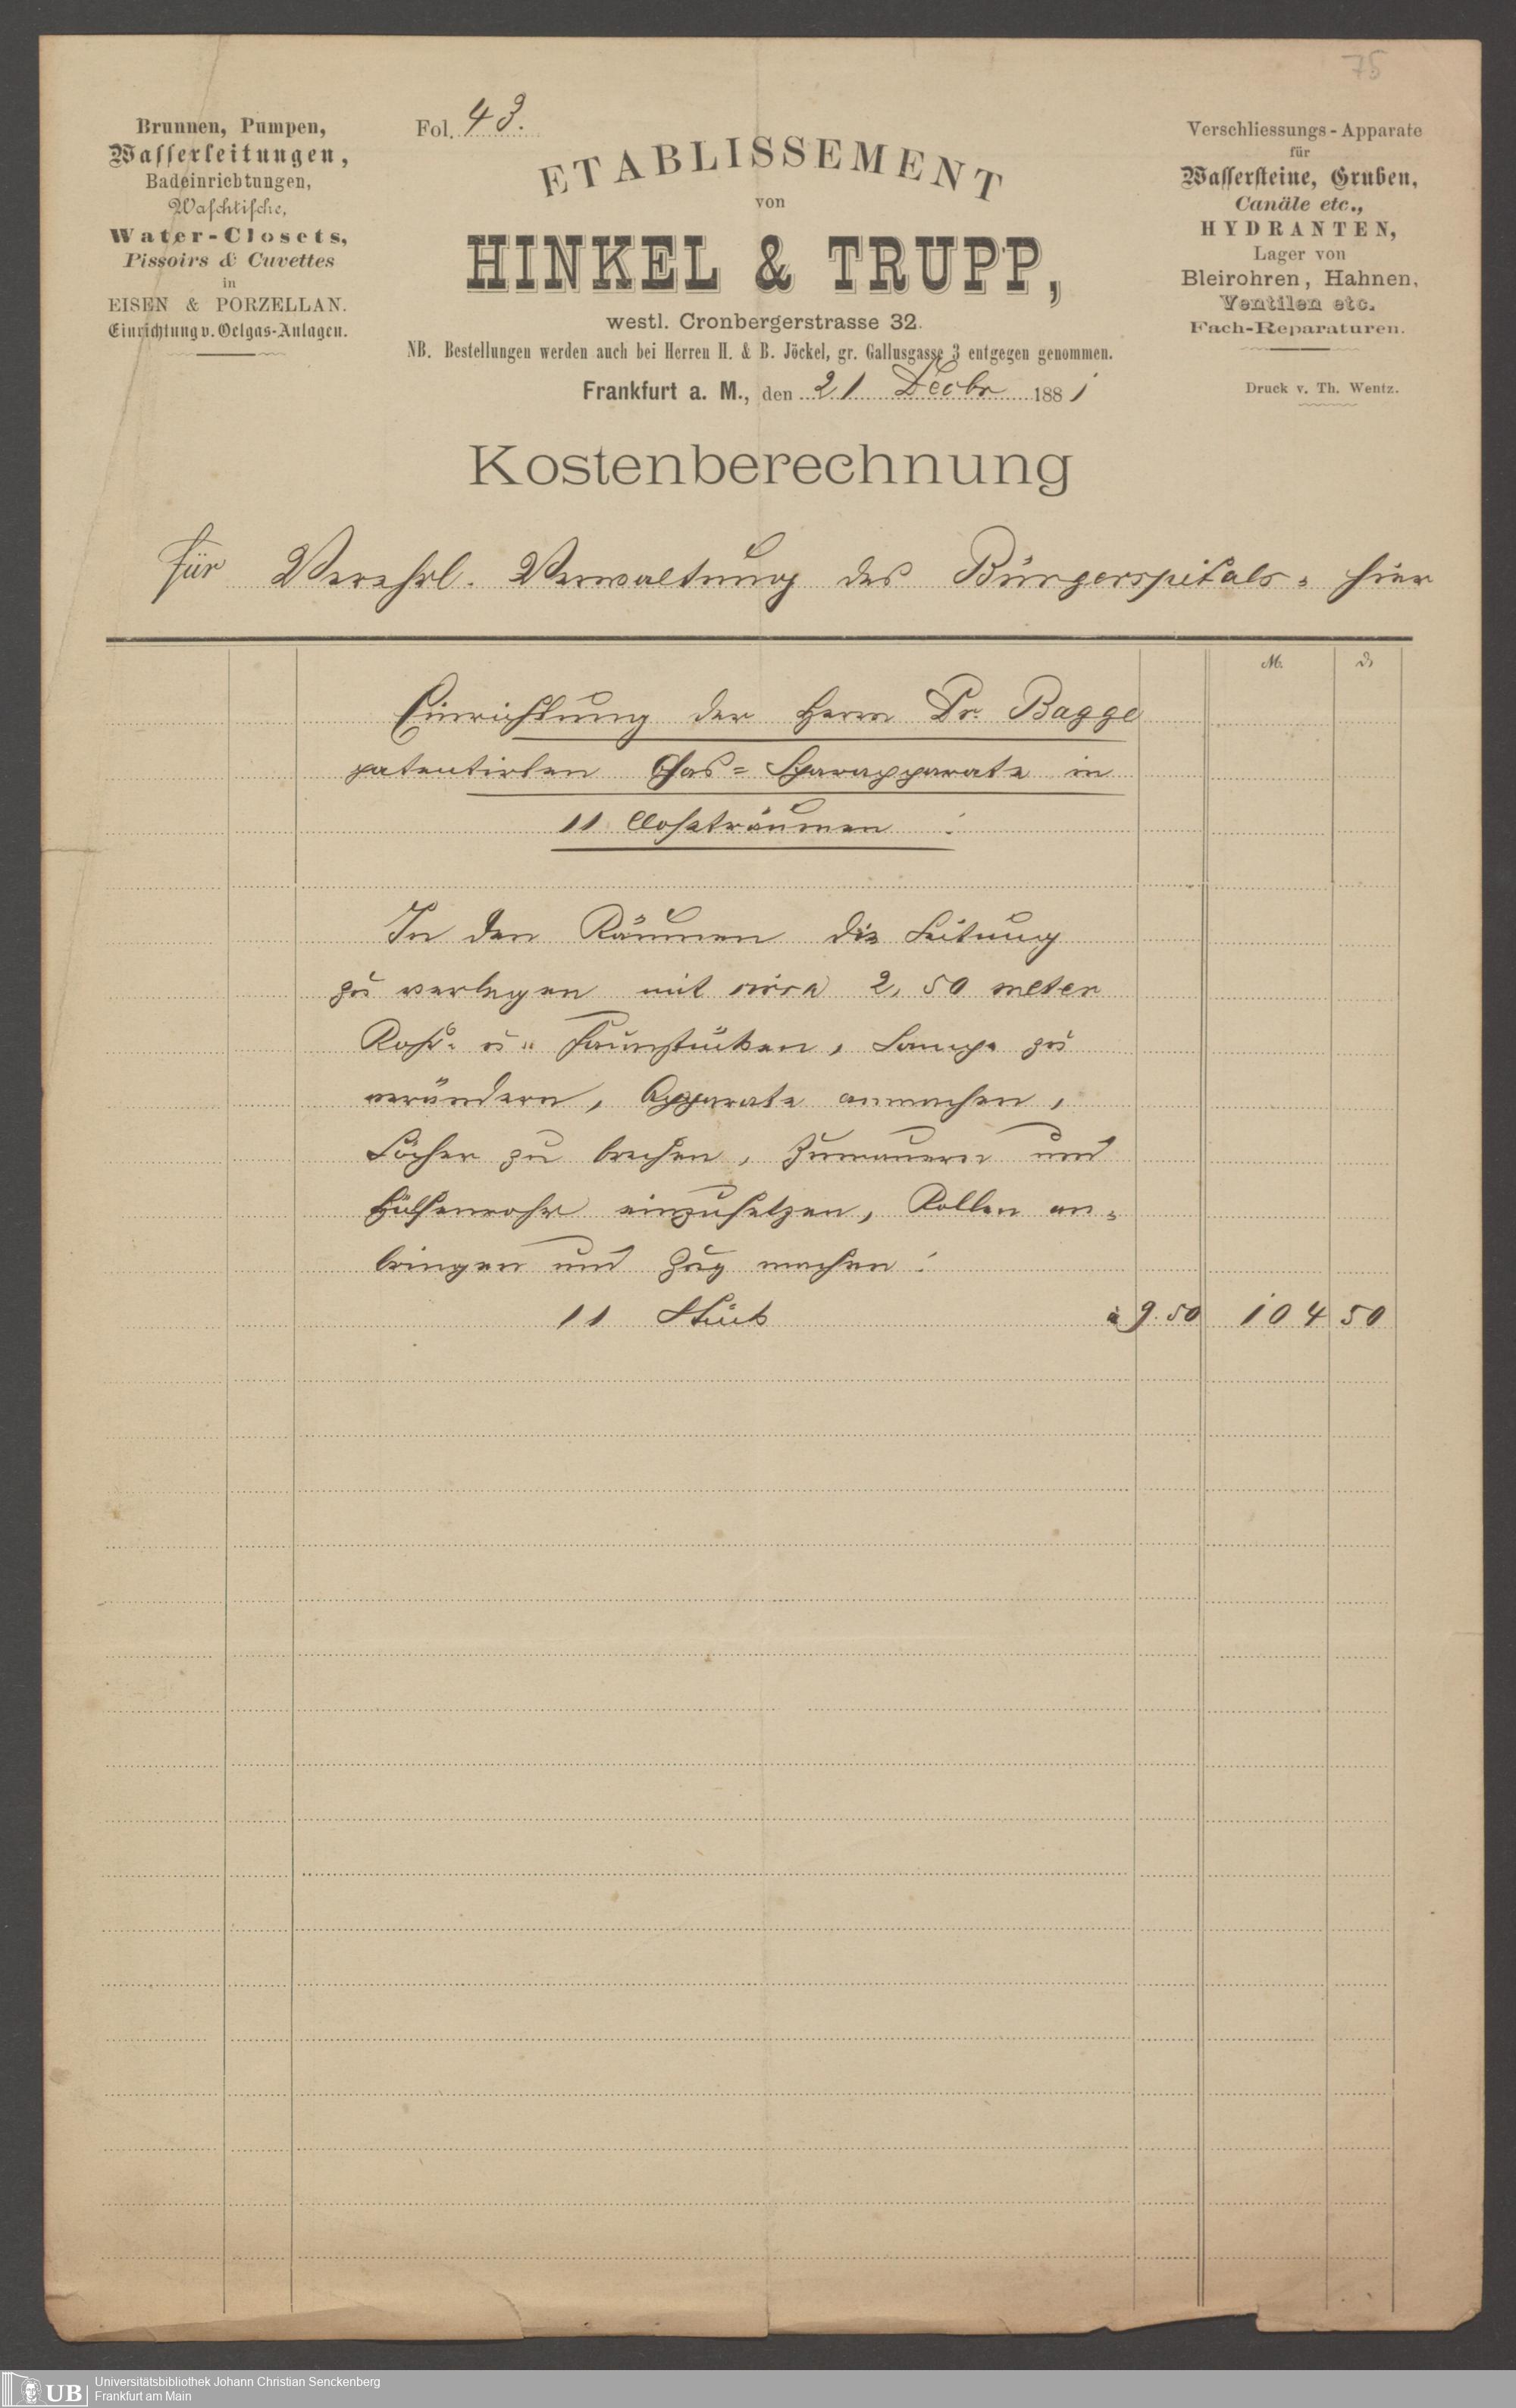 75
Brunnen, Pumpen,
Wasserleitungen,
Badeinrichtungen,
Waschtische,
Water-Closets,
Pissoirs & Cuvettes
in
EISEN & PORZELLAN.
Einrichtung v. Oelgas-Anlagen.
Fol. 43.
ETABLISSEMENT
von
HINKEL & TRUPP,
westl. Cronbergerstrasse 32.
NB. Bestellungen werden auch bei Herren H. & B. Jöckel, gr. Gallusgasse 3 entgegen genommen.
Frankfurt a. M., den 21 Decbr 1881
Verschliessungs-Apparate
für
Wassersteine, Gruben,
Canäle etc.,
HYDRANTEN,
Lager von
Bleirohren, Hahnen,
Ventilen etc.
Fach-Reparaturen.
Druck v. Th. Wentz.
Kostenberechnung
für Verehrl. Verwaltung des Bürgerspitals, hier
M. ₰
Einrichtung der Herrn Dr. Bagge
patentirten Gas= Sparapparate in
11 Closeträumen :
In den Räumen die Leitung
zu verlegen mit circa 2,50 meter
Rohr u. Faunstücken, Lampe zu
verändern, Apparate anmachen,
Löcher zu brechen, Zumauern und
Hülsenrohr einzusetzen, Rollen an=
bringen und Zug machen :
11 Stück à 9.50 104 50
Universitätsbibliothek Johann Christian Senckenberg
UB Frankfurt am Main